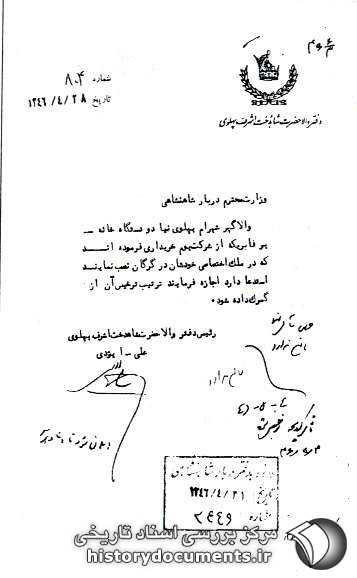 دفتر والاحضرت شاهدخت اشرف پهلوی
شماره ۸۰۴
تاریخ ۱۳۴۶/۴/۲۸
وزارت محترم دربار شاهنشاهی
والاگهر شهرام پهلوی نیا دو دستگاه خانه
پرفابریکه از شرکت بوم خریداری فرموده اند
که در ملک اختصاصی خودشان در گرگان نصب نمایند
استدعا دارد اجازه فرمایند ترتیب ترخیص آن از
گمرک داده شود.
رئیس دفتر والاحضرت شاهدخت اشرف پهلوی
علی - ایزدی
مانعی ندارد
دفتر دربار شاهنشاهی
تاریخ ۱۳۴۶/۴/۳۱
شماره ۲۴۴۹
مرکز بررسی اسناد تاریخی
historydocuments.ir